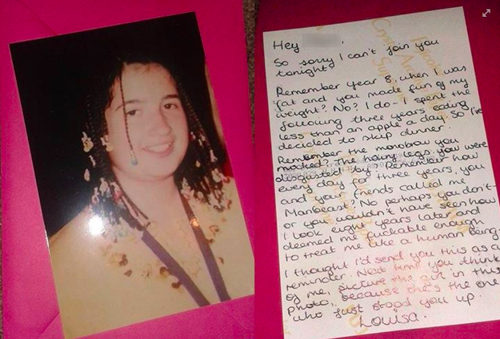 Hey
So sorry I can't join you
tonight.
Remember year 8, when I was
fat and you made fun of my
weight? No? I do - I spent the
following three years eating
less than an apple a day. So I've
decided to skip dinner.
Remember the monobrow you
mocked? The hairy legs you were
disgusted by? Remember how
every day for three years, you
and your friends called me
Manbeast? No perhaps you don't -
or you wouldn't have seen how
I look eight years later and
deemed me fuckable enough
to treat me like a human being.
I thought I'd send you this as a
reminder. Next time you think
of me, picture the girl in this
photo, because she's the one
who just stood you up.
Louisa.